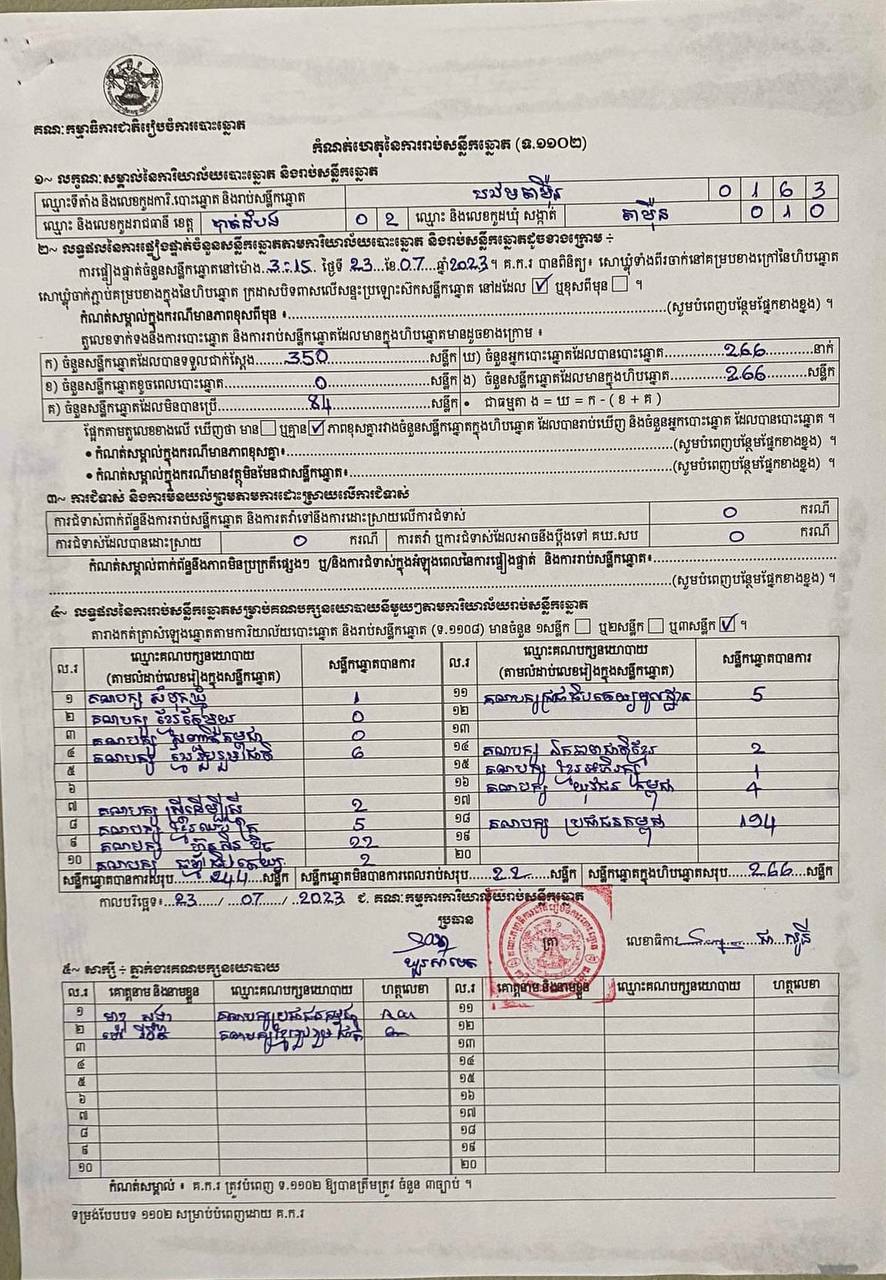 គណៈកម្មាធិការជាតិរៀបចំការបោះឆ្នោត
កំណត់ហេតុនៃការរាប់សន្លឹកឆ្នោត (ទ.១១០២)
១~ លក្ខណៈសម្គាល់នៃការិយាល័យបោះឆ្នោត និងរាប់សន្លឹកឆ្នោត
ឈ្មោះទីតាំង និងលេខកូដការិ.បោះឆ្នោត និងរាប់សន្លឹកឆ្នោត បឋមតាម៉ឺន 0 1 6 3
ឈ្មោះ និងលេខកូដរាជធានី ខេត្ត បាត់ដំបង 0 2 ឈ្មោះ និងលេខកូដឃុំ សង្កាត់ តាម៉ឺន 0 1 0
២~ លទ្ធផលនៃការផ្ទៀងផ្ទាត់ចំនួនសន្លឹកឆ្នោតតាមការិយាល័យបោះឆ្នោត និងរាប់សន្លឹកឆ្នោតដូចខាងក្រោម ÷
ការផ្ទៀងផ្ទាត់ចំនួនសន្លឹកឆ្នោតនៅម៉ោង.3:15. ថ្ងៃទី 23..ខែ.07...ឆ្នាំ2023. គ.ក.រ បានពិនិត្យ៖ សោឃ្លុំទាំងពីរចាក់នៅគម្របខាងក្រៅនៃហិបឆ្នោត
សោឃ្លុំចាក់ភ្ជាប់គម្របខាងក្នុងនៃហិបឆ្នោត ក្រដាសបិទពាសលើសន្ទះប្រឡោះស៊កសន្លឹកឆ្នោត នៅដដែល ☑ ឬខុសពីមុន ☐ ។
កំណត់សម្គាល់ក្នុងករណីមានភាពខុសពីមុន ៖........(សូមបំពេញបន្ថែមផ្នែកខាងខ្នង) ។
តួលេខទាក់ទងនឹងការបោះឆ្នោត និងការរាប់សន្លឹកឆ្នោតដែលមានក្នុងហិបឆ្នោតមានដូចខាងក្រោម ៖
ក) ចំនួនសន្លឹកឆ្នោតដែលបានទទួលជាក់ស្តែង......350......សន្លឹក ឃ) ចំនួនអ្នកបោះឆ្នោតដែលបានបោះឆ្នោត......266......នាក់
ខ) ចំនួនសន្លឹកឆ្នោតខូចពេលបោះឆ្នោត......0......សន្លឹក ង) ចំនួនសន្លឹកឆ្នោតដែលមានក្នុងហិបឆ្នោត......266......សន្លឹក
គ) ចំនួនសន្លឹកឆ្នោតដែលមិនបានប្រើ......84......សន្លឹក • ជាធម្មតា ង = ឃ = ក - ( ខ + គ )
ផ្អែកតាមតួលេខខាងលើ ឃើញថា មាន☐ ឬគ្មាន☑ ភាពខុសគ្នារវាងចំនួនសន្លឹកឆ្នោតក្នុងហិបឆ្នោត ដែលបានរាប់ឃើញ និងចំនួនអ្នកបោះឆ្នោត ដែលបានបោះឆ្នោត ។
• កំណត់សម្គាល់ក្នុងករណីមានភាពខុសគ្នា៖........(សូមបំពេញបន្ថែមផ្នែកខាងខ្នង) ។
• កំណត់សម្គាល់ក្នុងករណីមានវត្ថុមិនមែនជាសន្លឹកឆ្នោត៖........(សូមបំពេញបន្ថែមផ្នែកខាងខ្នង) ។
៣~ ការជំទាស់ និងការមិនយល់ព្រមតាមការដោះស្រាយលើការជំទាស់
ការជំទាស់ពាក់ព័ន្ធនឹងការរាប់សន្លឹកឆ្នោត និងការតវ៉ាទៅនឹងការដោះស្រាយលើការជំទាស់ 0 ករណី
ការជំទាស់ដែលបានដោះស្រាយ 0 ករណី ការតវ៉ា ឬការជំទាស់ដែលអាចនឹងប្តឹងទៅ គឃ.សប 0 ករណី
កំណត់សម្គាល់ពាក់ព័ន្ធនឹងភាពមិនប្រក្រតីផ្សេងៗ ឬ/និងការជំទាស់ក្នុងអំឡុងពេលនៃការផ្ទៀងផ្ទាត់ និងការរាប់សន្លឹកឆ្នោត៖........
........(សូមបំពេញបន្ថែមផ្នែកខាងខ្នង) ។
៤~ លទ្ធផលនៃការរាប់សន្លឹកឆ្នោតសម្រាប់គណបក្សនយោបាយនីមួយៗតាមការិយាល័យរាប់សន្លឹកឆ្នោត
តារាងកត់ត្រាសំឡេងឆ្នោតតាមការិយាល័យបោះឆ្នោត និងរាប់សន្លឹកឆ្នោត (ទ.១១០៨) មានចំនួន ១សន្លឹក ☐ ឬ២សន្លឹក ☐ ឬ៣សន្លឹក ☑ ។
ល.រ ឈ្មោះគណបក្សនយោបាយ (តាមលំដាប់លេខរៀងក្នុងសន្លឹកឆ្នោត) សន្លឹកឆ្នោតបានការ ល.រ ឈ្មោះគណបក្សនយោបាយ (តាមលំដាប់លេខរៀងក្នុងសន្លឹកឆ្នោត) សន្លឹកឆ្នោតបានការ
១ គណបក្ស សំបុកឃ្មុំ 1 ១១ គណបក្សប្រជាធិបតេយ្យមូលដ្ឋាន 5
២ គណបក្ស ខ្មែរតែមួយ 0 ១២
៣ គណបក្ស សញ្ជាតិកម្ពុជា 0 ១៣
៤ គណបក្ស ខ្មែររួបរួមជាតិ 6 ១៤ គណបក្ស ឯកភាពជាតិខ្មែរ 2
៥ ១៥ គណបក្ស ខ្មែរអភិរក្ស 1
៦ ១៦ គណបក្ស យុវជន កម្ពុជា 4
៧ គណបក្ស ស្រ្តីដើម្បីស្រ្តី 2 ១៧
៨ គណបក្ស ខ្មែរឈប់ក្រ 5 ១៨ គណបក្ស ប្រជាជនកម្ពុជា 194
៩ គណបក្ស ហ៊្វុនស៊ិនប៉ិច 22 ១៩
១០ គណបក្ស ធម្មាធិបតេយ្យ 2 ២០
សន្លឹកឆ្នោតបានការសរុប......244...សន្លឹក សន្លឹកឆ្នោតមិនបានការពេលរាប់សរុប......22...សន្លឹក សន្លឹកឆ្នោតក្នុងហិបឆ្នោតសរុប......266...សន្លឹក
កាលបរិច្ឆេទ៖...23...../...07...../..2023 ជ. គណៈកម្មការការិយាល័យរាប់សន្លឹកឆ្នោត
ប្រធាន
ត្រា
លេខាធិការ
៥~ សាក្សី ÷ ភ្នាក់ងារគណបក្សនយោបាយ
ល.រ គោត្តនាម និងនាមខ្លួន ឈ្មោះគណបក្សនយោបាយ ហត្ថលេខា ល.រ គោត្តនាម និងនាមខ្លួន ឈ្មោះគណបក្សនយោបាយ ហត្ថលេខា
១ គណបក្សប្រជាជនកម្ពុជា ១១
២ គណបក្សខ្មែររួបរួមជាតិ ១២
៣ ១៣
៤ ១៤
៥ ១៥
៦ ១៦
៧ ១៧
៨ ១៨
៩ ១៩
១០ ២០
កំណត់សម្គាល់ ៖ គ.ក.រ ត្រូវបំពេញ ទ.១១០២ ឱ្យបានត្រឹមត្រូវ ចំនួន ៣ច្បាប់ ។
ទម្រង់បែបបទ ១១០២ សម្រាប់បំពេញដោយ គ.ក.រ